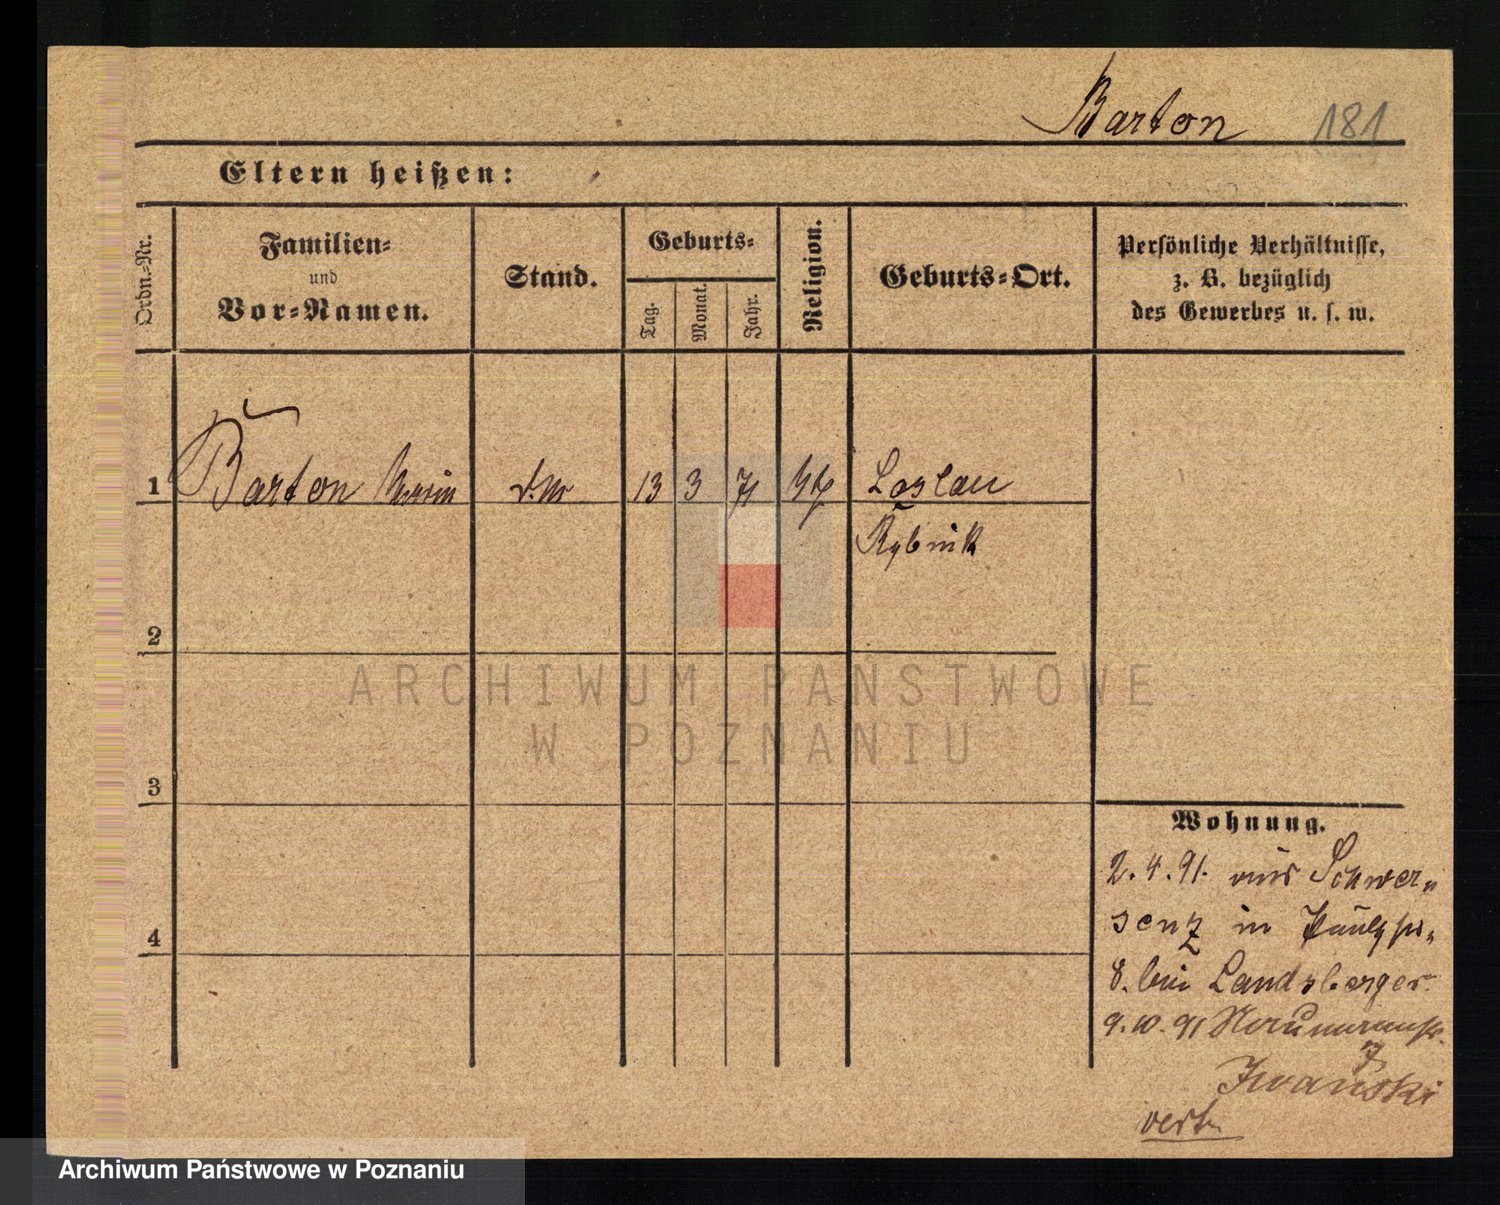 Barton 181
Eltern heißen:
Ordn.=Nr.
Familien=
und
Vor=Namen.
Stand.
Geburts=
Tag.
Monat.
Jahr.
Religion.
Geburts=Ort.
Persönliche Verhältnisse,
z. B. bezüglich
des Gewerbes u. s. w.
1 Barton 13 3 71 Loslau
Rybnik
2
3
4
ARCHIWUM PAŃSTWOWE
W POZNANIU
Wohnung.
2. 4. 91. aus Schwer„
senz in
8. bei Landsberger
9. 10. 91
7
Iwański
Archiwum Państwowe w Poznaniu